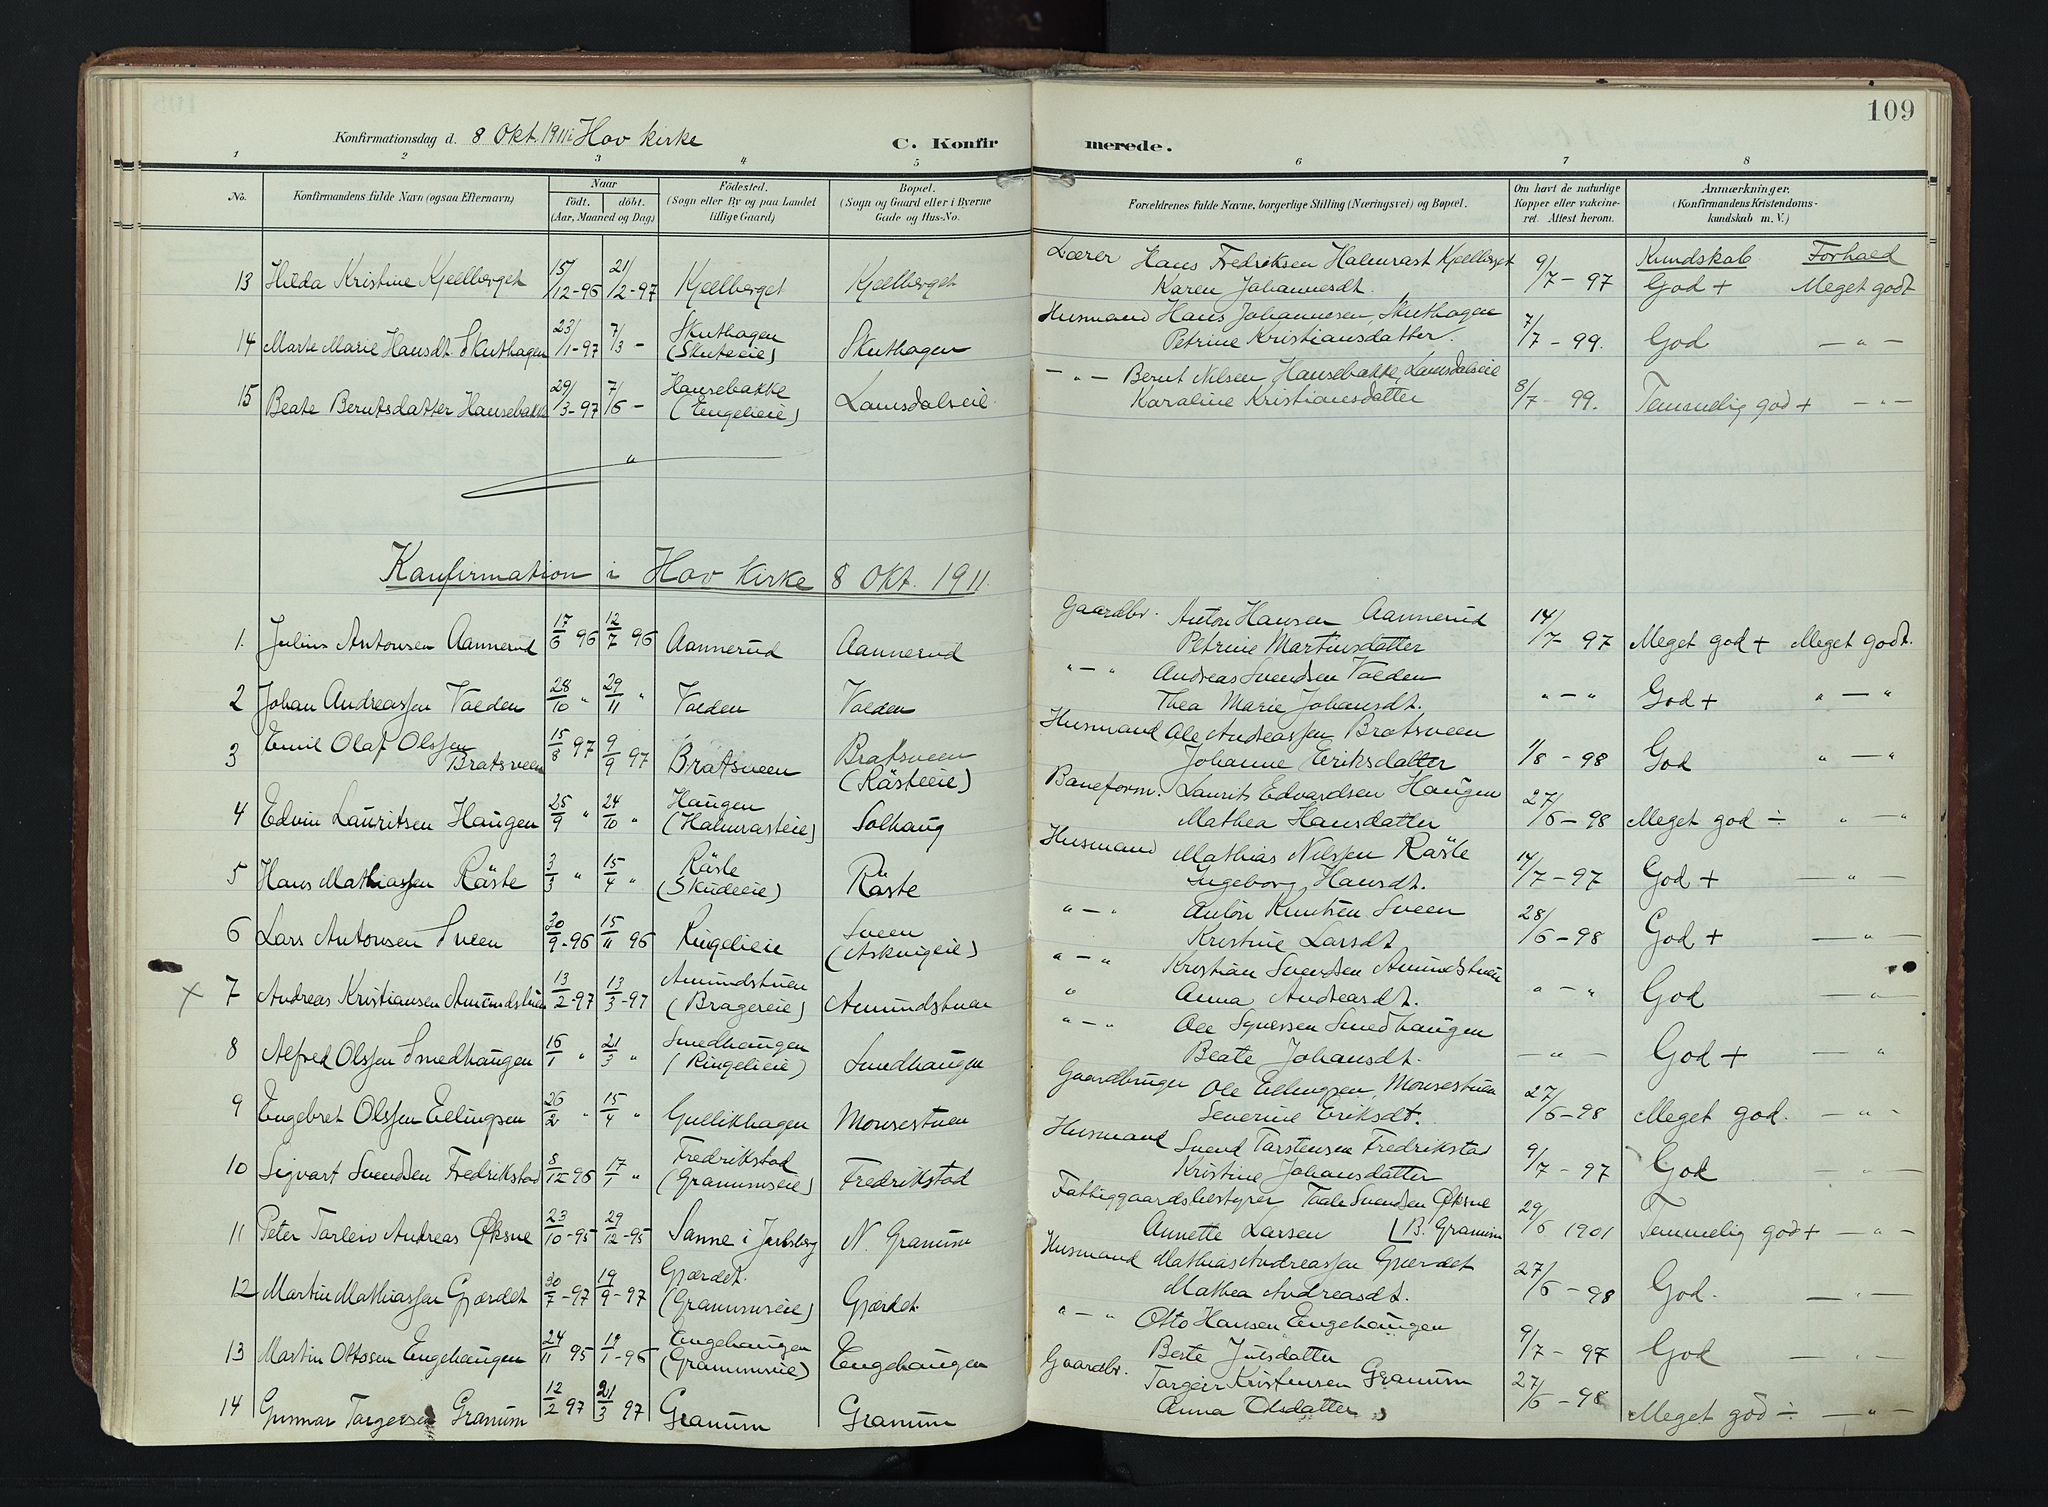 109
Konfirmationsdag d. 8 Okt. 1911 i Hov kirke
C. Konfirmerede.
1 2 3 4 5 6 7 8
No. Konfirmandens fulde Navn (ogsaa Efternavn) Naar födt. döbt. (Aar, Maaned og Dag) Födested. (Sogn eller By og paa Landet tillige Gaard) Bopæl. (Sogn og Gaard eller i Byerne Gade og Hus-No.) Forældrenes fulde Navne, borgerlige Stilling (Næringsvei) og Bopæl. Om havt de naturlige Kopper eller vakcineret. Attest herom. Anmærkninger. (Konfirmandens Kristendomskundskab m. V.)
Kundskab Forhold
13 Hilda Kristine Kjelberget 15/12-96 21/2-97 Kjelberget Kjelberget Lærer Hans Fredriksen Halmrast Kjelberget
Karen Johannesdt. 9/7-97 God + Meget godt
14 Marte Marie Hansdt. Skuthagen 23/1-97 7/3 - Skuthagen (Skuteeie) Skuthagen Husmand Hans Johannesen, Skuthagen
Petrine Kristiansdatter. 7/7-99. God — " —
15 Beate Berntsdatter Hansebakke 29/3-97 7/6 - Hansebakke (Engelieie) Lamsdalseie — " — Bernt Nilsen Hansebakke, Lamsdalseie
Karaline Kristiansdatter 8/7-99. Temmelig god + — " —
"
Konfirmation i Hov Kirke 8 Okt. 1911.
1. Julius Antonsen Aannerud 17/6 96 12/7 96 Aannerud Aannerud Gaardbr. Anton Hansen Aannerud
Petrine Martinsdatter 14/7-97 Meget god + Meget godt.
2 Johan Andreassen Voeden 28/10 " 29/11 " Voeden Voeden " — " Andreas Svendsen Voeden
Thea Marie Johansdt. " — " God + " — "
3 Emil Olaf Olssen Bratsveen 15/8 97 9/9 97 Bratsveen Bratsveen (Rästeeie) Husmand Ole Andreassen Bratsveen
Johanne Eriksdatter 1/8-98 God " — "
4 Edvin Lauritsen Haugen 25/9 " 24/10 " Haugen (Halmrasteie) Solhaug Baneform. Laurits Edvardsen Haugen
Mathea Hansdatter 27/6-98 Meget god ÷ " — "
5 Hans Mathiassen Räste 3/3 " 15/4 " Räste (Skudeeie) Räste Husmand Mathias Nilssen Räste
Ingeborg Hansdt. 14/7-97 God + — " —
6 Lars Antonsen Sveen 30/9-96 15/11 96 Ringelieie Sveen (Askvigeie) " — " Anton Knutsen Sveen
Kristine Larsdt. 28/6-98 God + — " —
× 7 Andreas Kristiansen Amundstuen 13/2-97 13/3-97 Amundstuen (Bragereie) Amundstuen " — " Kristian Svendsen Amundstuen
" Anna Andreasdt. " — " God — " —
8 Alfred Olssen Smedhaugen 16/1 " 21/3 " Smedhaugen (Ringelieie) Smedhaugen " — " Ole Syversen Smedhaugen
Beate Johansdt. — " — God + — "
9 Engebret Olssen Ellingsen 26/2 " 15/4 " Gullikhagen Monsestuen Gaardbruger Ole Ellingsen, Monsestuen
Severine Eriksdt. 27/6-98 Meget god. — " —
10 Sigvart Svendsen Fredrikstad 8/12-96 17/1 " Fredrikstad (Granumseie) Fredrikstad Husmand Svend Tarstensen Fredrikstad
Kristine Johansdatter 9/7-97 God — " —
11 Peter Tarleiv Andreas Øksne 23/10-95 29/12-95 Sanne i Jarlsberg N. Granum Fattiggaardsbestyrer Svendsen Øksne
Annette Larsen [B. Granum 29/6 1901 Temmelig god + — " —
12 Martin Mathiassen Gjærdet 30/7-97 19/9-97 Gjærdet. (Granumseie) Gjærdet. Husmand Mathias Andreassen Gjærdet
Mathea Andreasdt. 27/6-98 God. — " —
13 Martin Ottosen Engehaugen 24/11 95 19/1-96 Engehaugen (Granumseie) Engehaugen " — " Otto Hansen Engehaugen
Berte Julsdatter 9/7-97 God — " —
14 Gunnar Targersen Granum 12/2 97 21/3 97 Granum Granum Gaardbr. Targeir Kristensen Granum
Anna Olsdatter 27/6-98 Meget god ÷ — " —